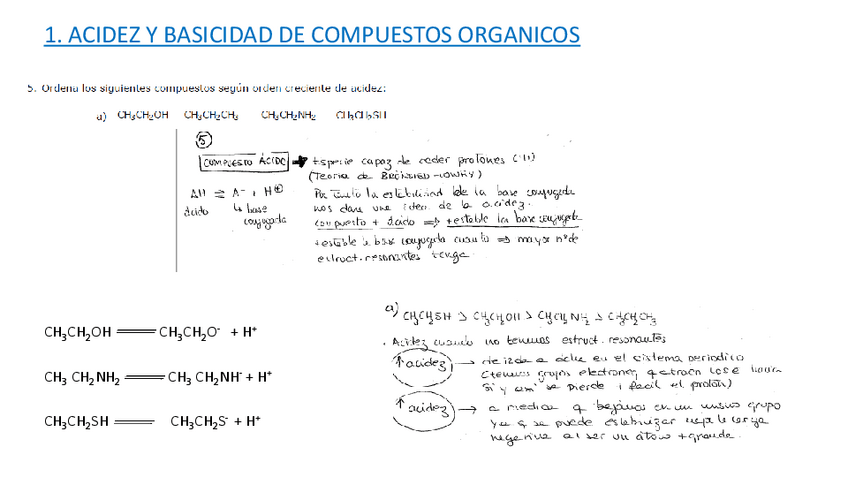 1. ACIDEZ Y BASICIDAD DE COMPUESTOS ORGANICOS
5. Ordena los siguientes compuestos según orden creciente de acidez:
a) CH₃CH₂OH CH₃CH₂CH₃ CH₃CH₂NH₂ CH₃CH₂SH
5
COMPUESTO ÁCIDO → Especie capaz de ceder protones (H)
(Teoría de BRÖNSTED-LOWRY)
AH ⇌ A⁻ + H⊕
ácido ↳ base conjugada
Por tanto la estabilidad de la base conjugada
nos da una idea de la acidez.
compuesto + ácido ⇒ + estable la base conjugada
+ estable la base conjugada cuanto ⇒ mayor nº de
estruct. resonantes tenga
CH₃CH₂OH ═ CH₃CH₂O⁻ + H⁺
CH₃ CH₂NH₂ ═ CH₃ CH₂NH⁻ + H⁺
CH₃CH₂SH ═ CH₃CH₂S⁻ + H⁺
a) CH₃CH₂SH > CH₃CH₂OH > CH₃CH₂NH₂ > CH₃CH₂CH₃
. Acidez cuando no tenemos estruct. resonantes
↑ acidez → de izda a dcha en el sistema periodico
(tenemos grupos electroneg q atraen los e⁻ hacia
sí y así se pierde + facil el protón)
↑ acidez → a medida q bajamos en un mismo grupo
ya q se puede estabilizar mejor la carga
negativa al ser un átomo + grande.